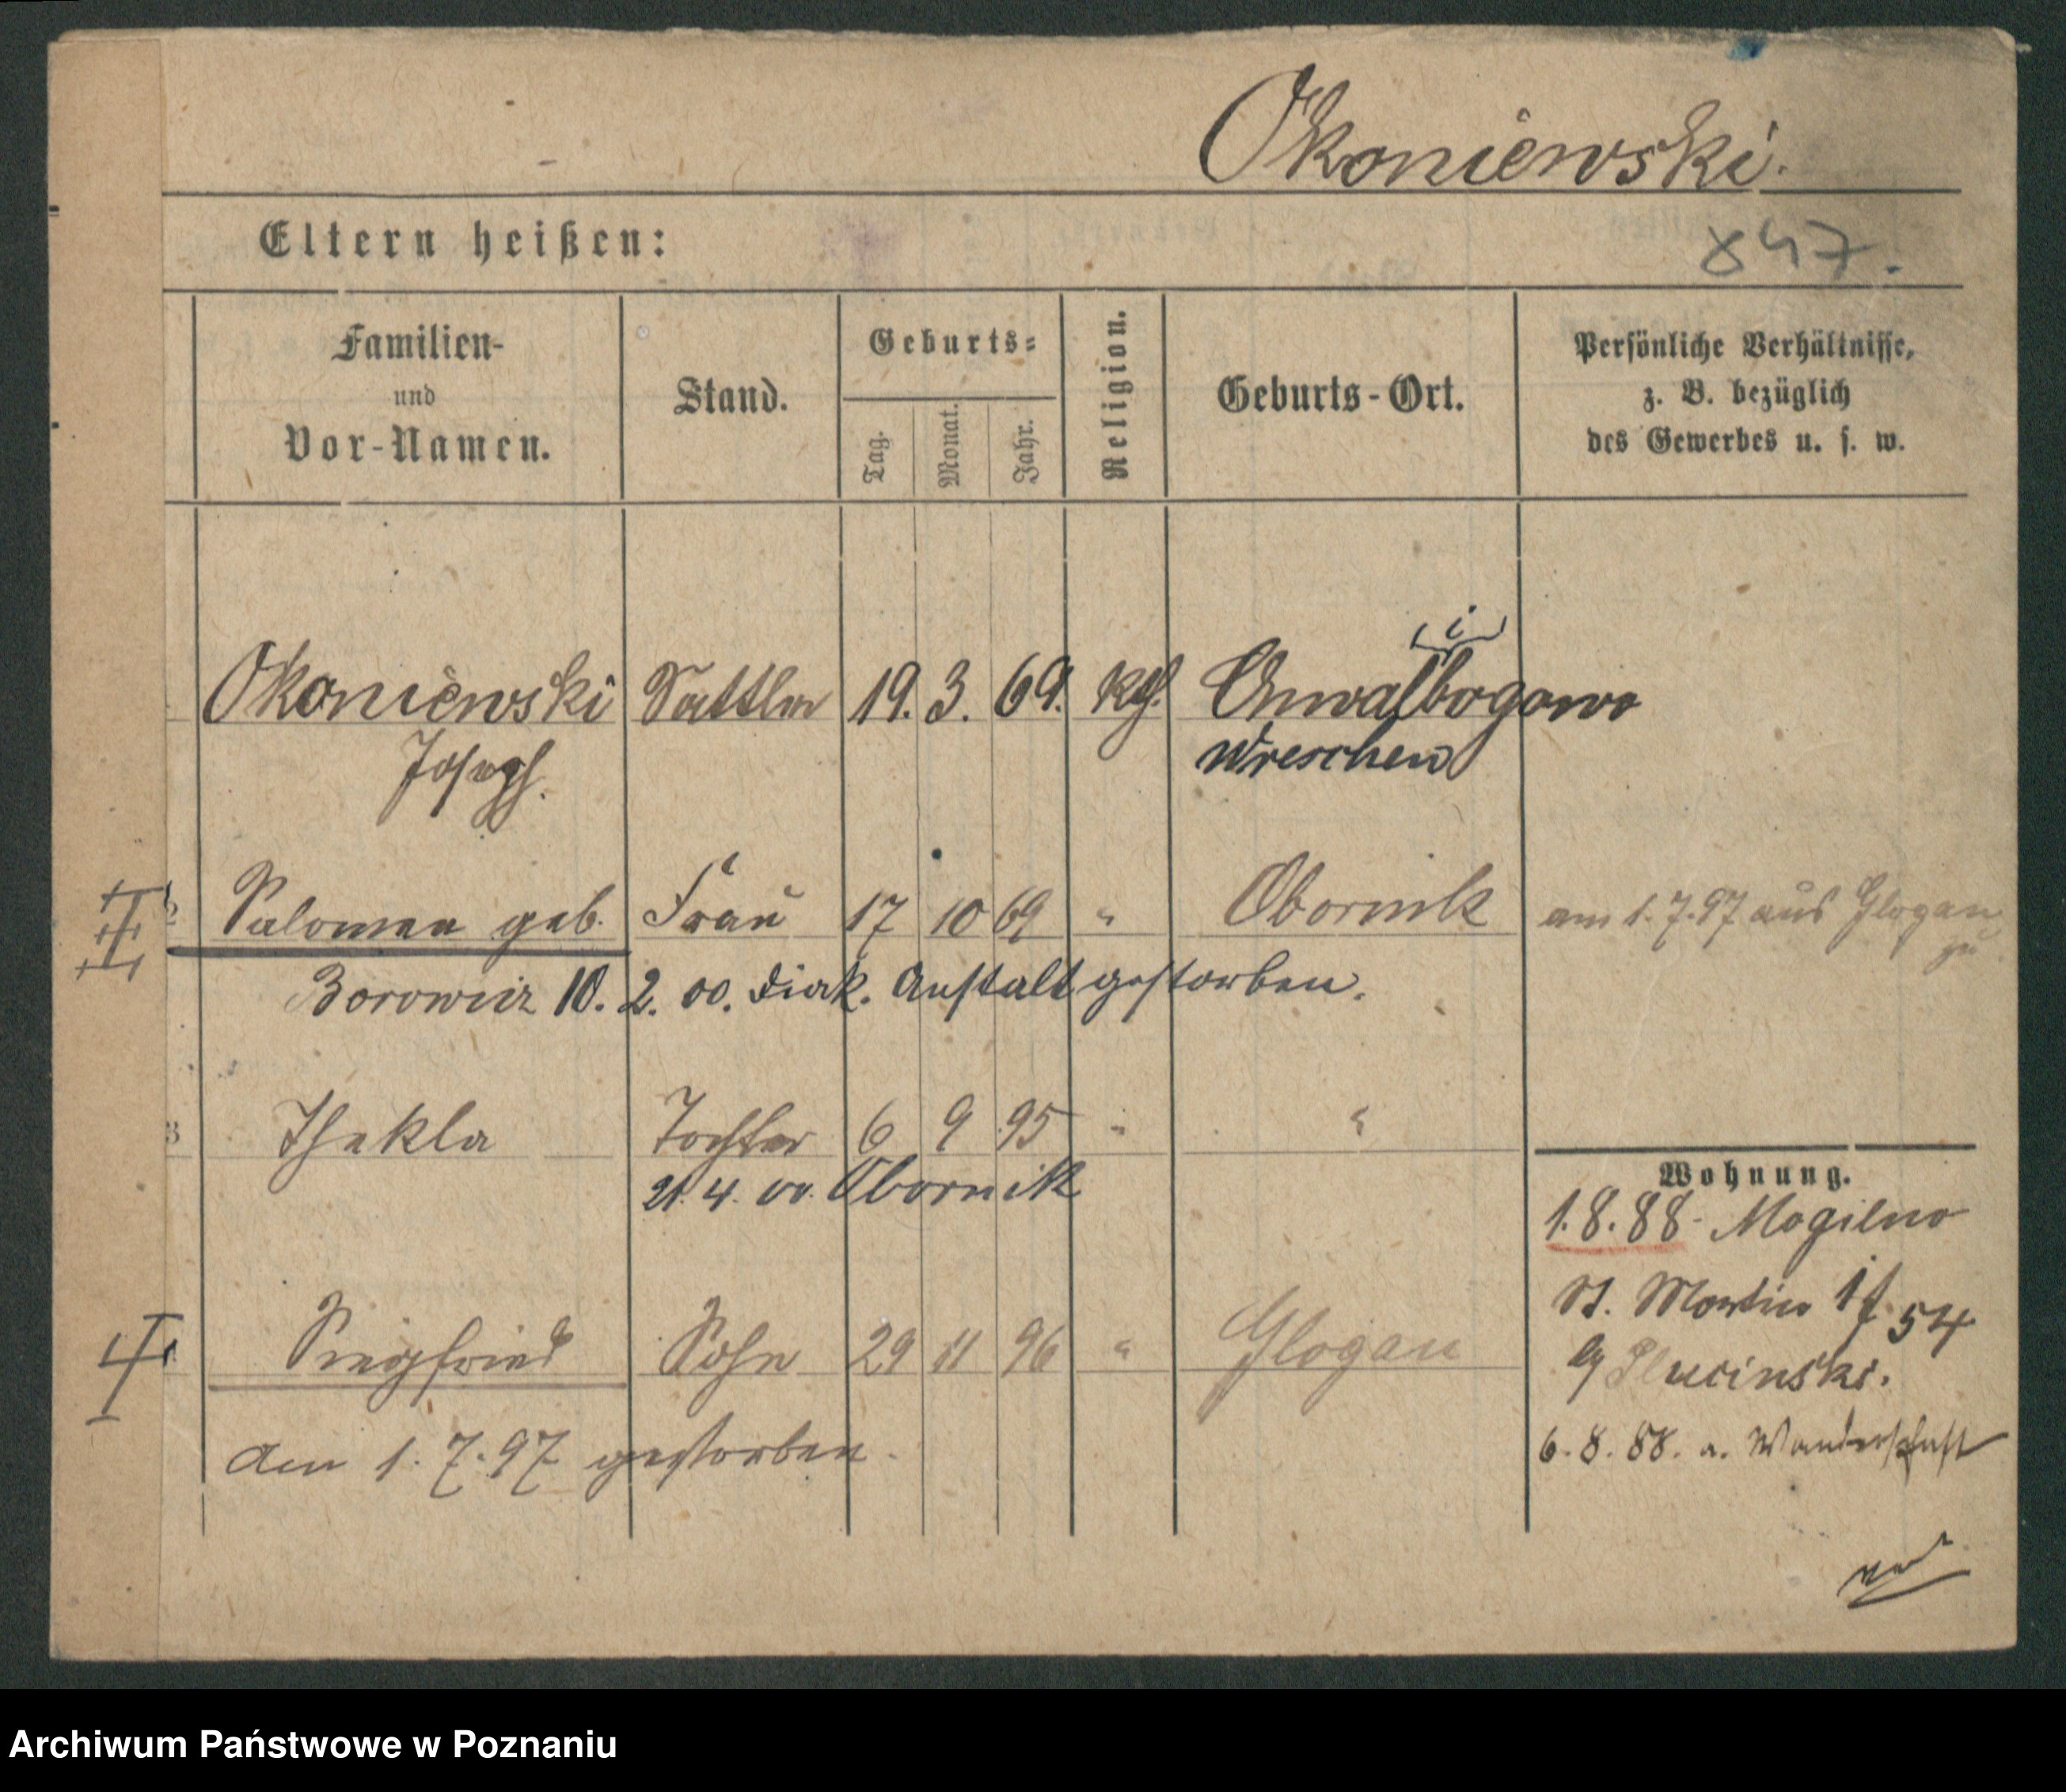 Okoniewski.
847.
Eltern heißen:
Familien-
und
Vor-Namen.
Stand.
Geburts-
Tag.
Monat.
Jahr.
Religion.
Geburts-Ort.
Persönliche Verhältnisse,
z. B. bezüglich
des Gewerbes u. s. w.
Okoniewski Sattler 19. 3. 69. kth. Chwalibogowo
Joseph. Wreschen
2 Salomea geb. Frau 17 10 69 " Obornik am 1.7.97 aus Glogau
zu
Borowicz 10. 2. 00. Diak. Anstalt gestorben.
3 Thekla Tochter 6 9 95 " "
21. 4. 00. Obornik
Wohnung.
1.8.88 - Mogilno
St. Martin 54
Siegfried Sohn 29 11 96 " Glogau
Plucinski.
am 1. 7. 97 gestorben.
6. 8. 88. a. Wanderschaft
Archiwum Państwowe w Poznaniu